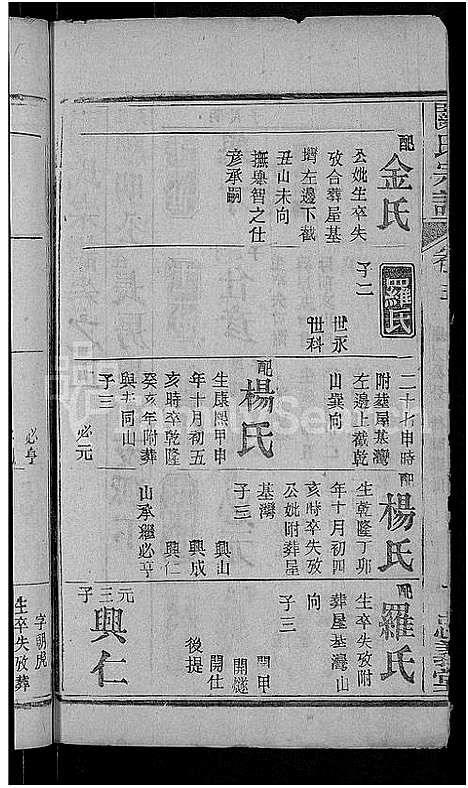 配
金氏
公妣生卒失
攷合葬屋基
壻左邊下截
丑山未向
撫與智之仕
彥承嗣
羅氏
子二
世永
世科
二十七申時
附葬屋基灣
左邊上截乾
山巽向
配
楊氏
生康熙甲申
年十月初五
亥時卒乾隆
癸亥年附葬
與共同山
子三
必元
必亨
配
楊氏
生乾隆丁卯
年十月初四
亥時卒失攷
公妣附葬屋
基灣
子三
興山
興成
興仁
山承繼必亨
配
羅氏
生卒失攷附
葬屋基灣山
向
子三
開甲
開燧
開仕
後提
元三子
興仁
字朝虎
生卒失攷葬